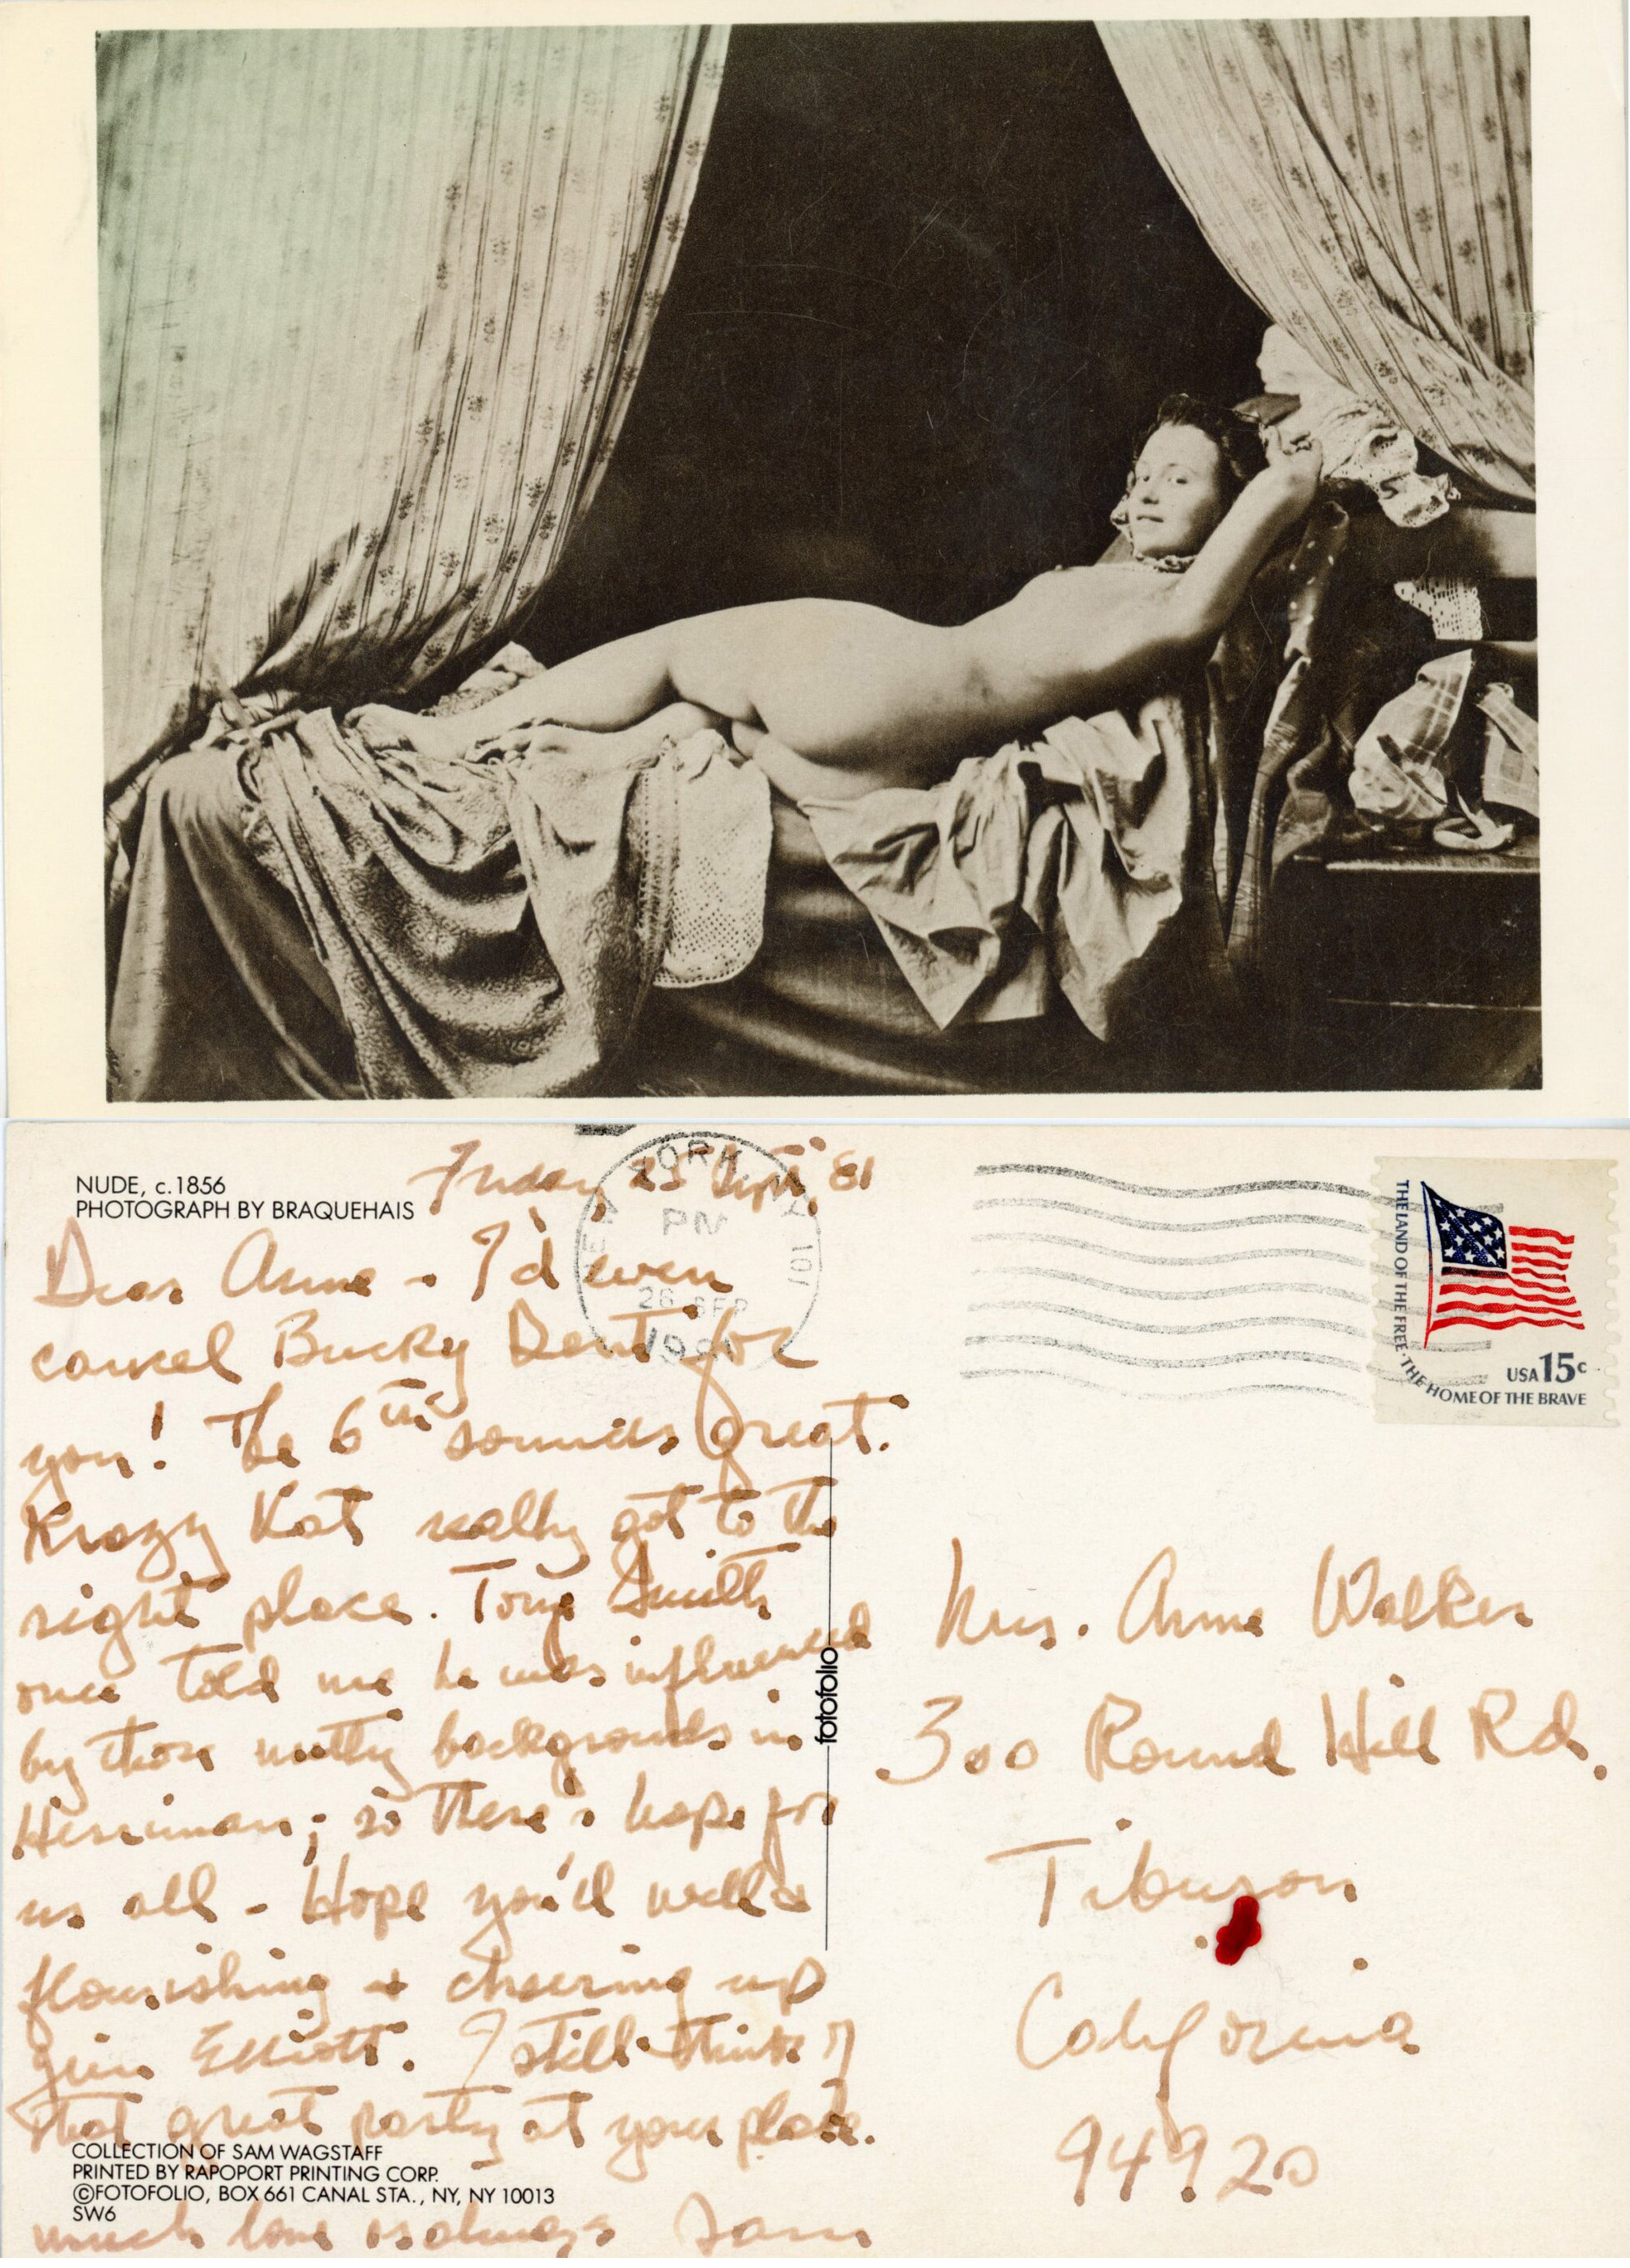 NUDE, c.1856
PHOTOGRAPH BY BRAQUEHAIS
Friday 25 Sept, 81
Dear Anne - I'd even
cancel Bucky Dent for
you! The 6th sounds great.
Krazy Kat really got to the
right place. Tony Smith
once told me he was influenced
by those nutty backgrounds in
Herriman; so there's hope for
us all - Hope you'll
flourishing + cheering up
Jim Elliott. I still think of
that great party at your place.
COLLECTION OF SAM WAGSTAFF
PRINTED BY RAPOPORT PRINTING CORP.
©FOTOFOLIO, BOX 661 CANAL STA., NY, NY 10013
SW6
much love as always Sam
fotofolio
YORK
PM
101
SEP
THE LAND OF THE FREE · THE HOME OF THE BRAVE
USA 15c
Mrs. Anne Walker
300 Round Hill Rd.
Tiburon
California
94920